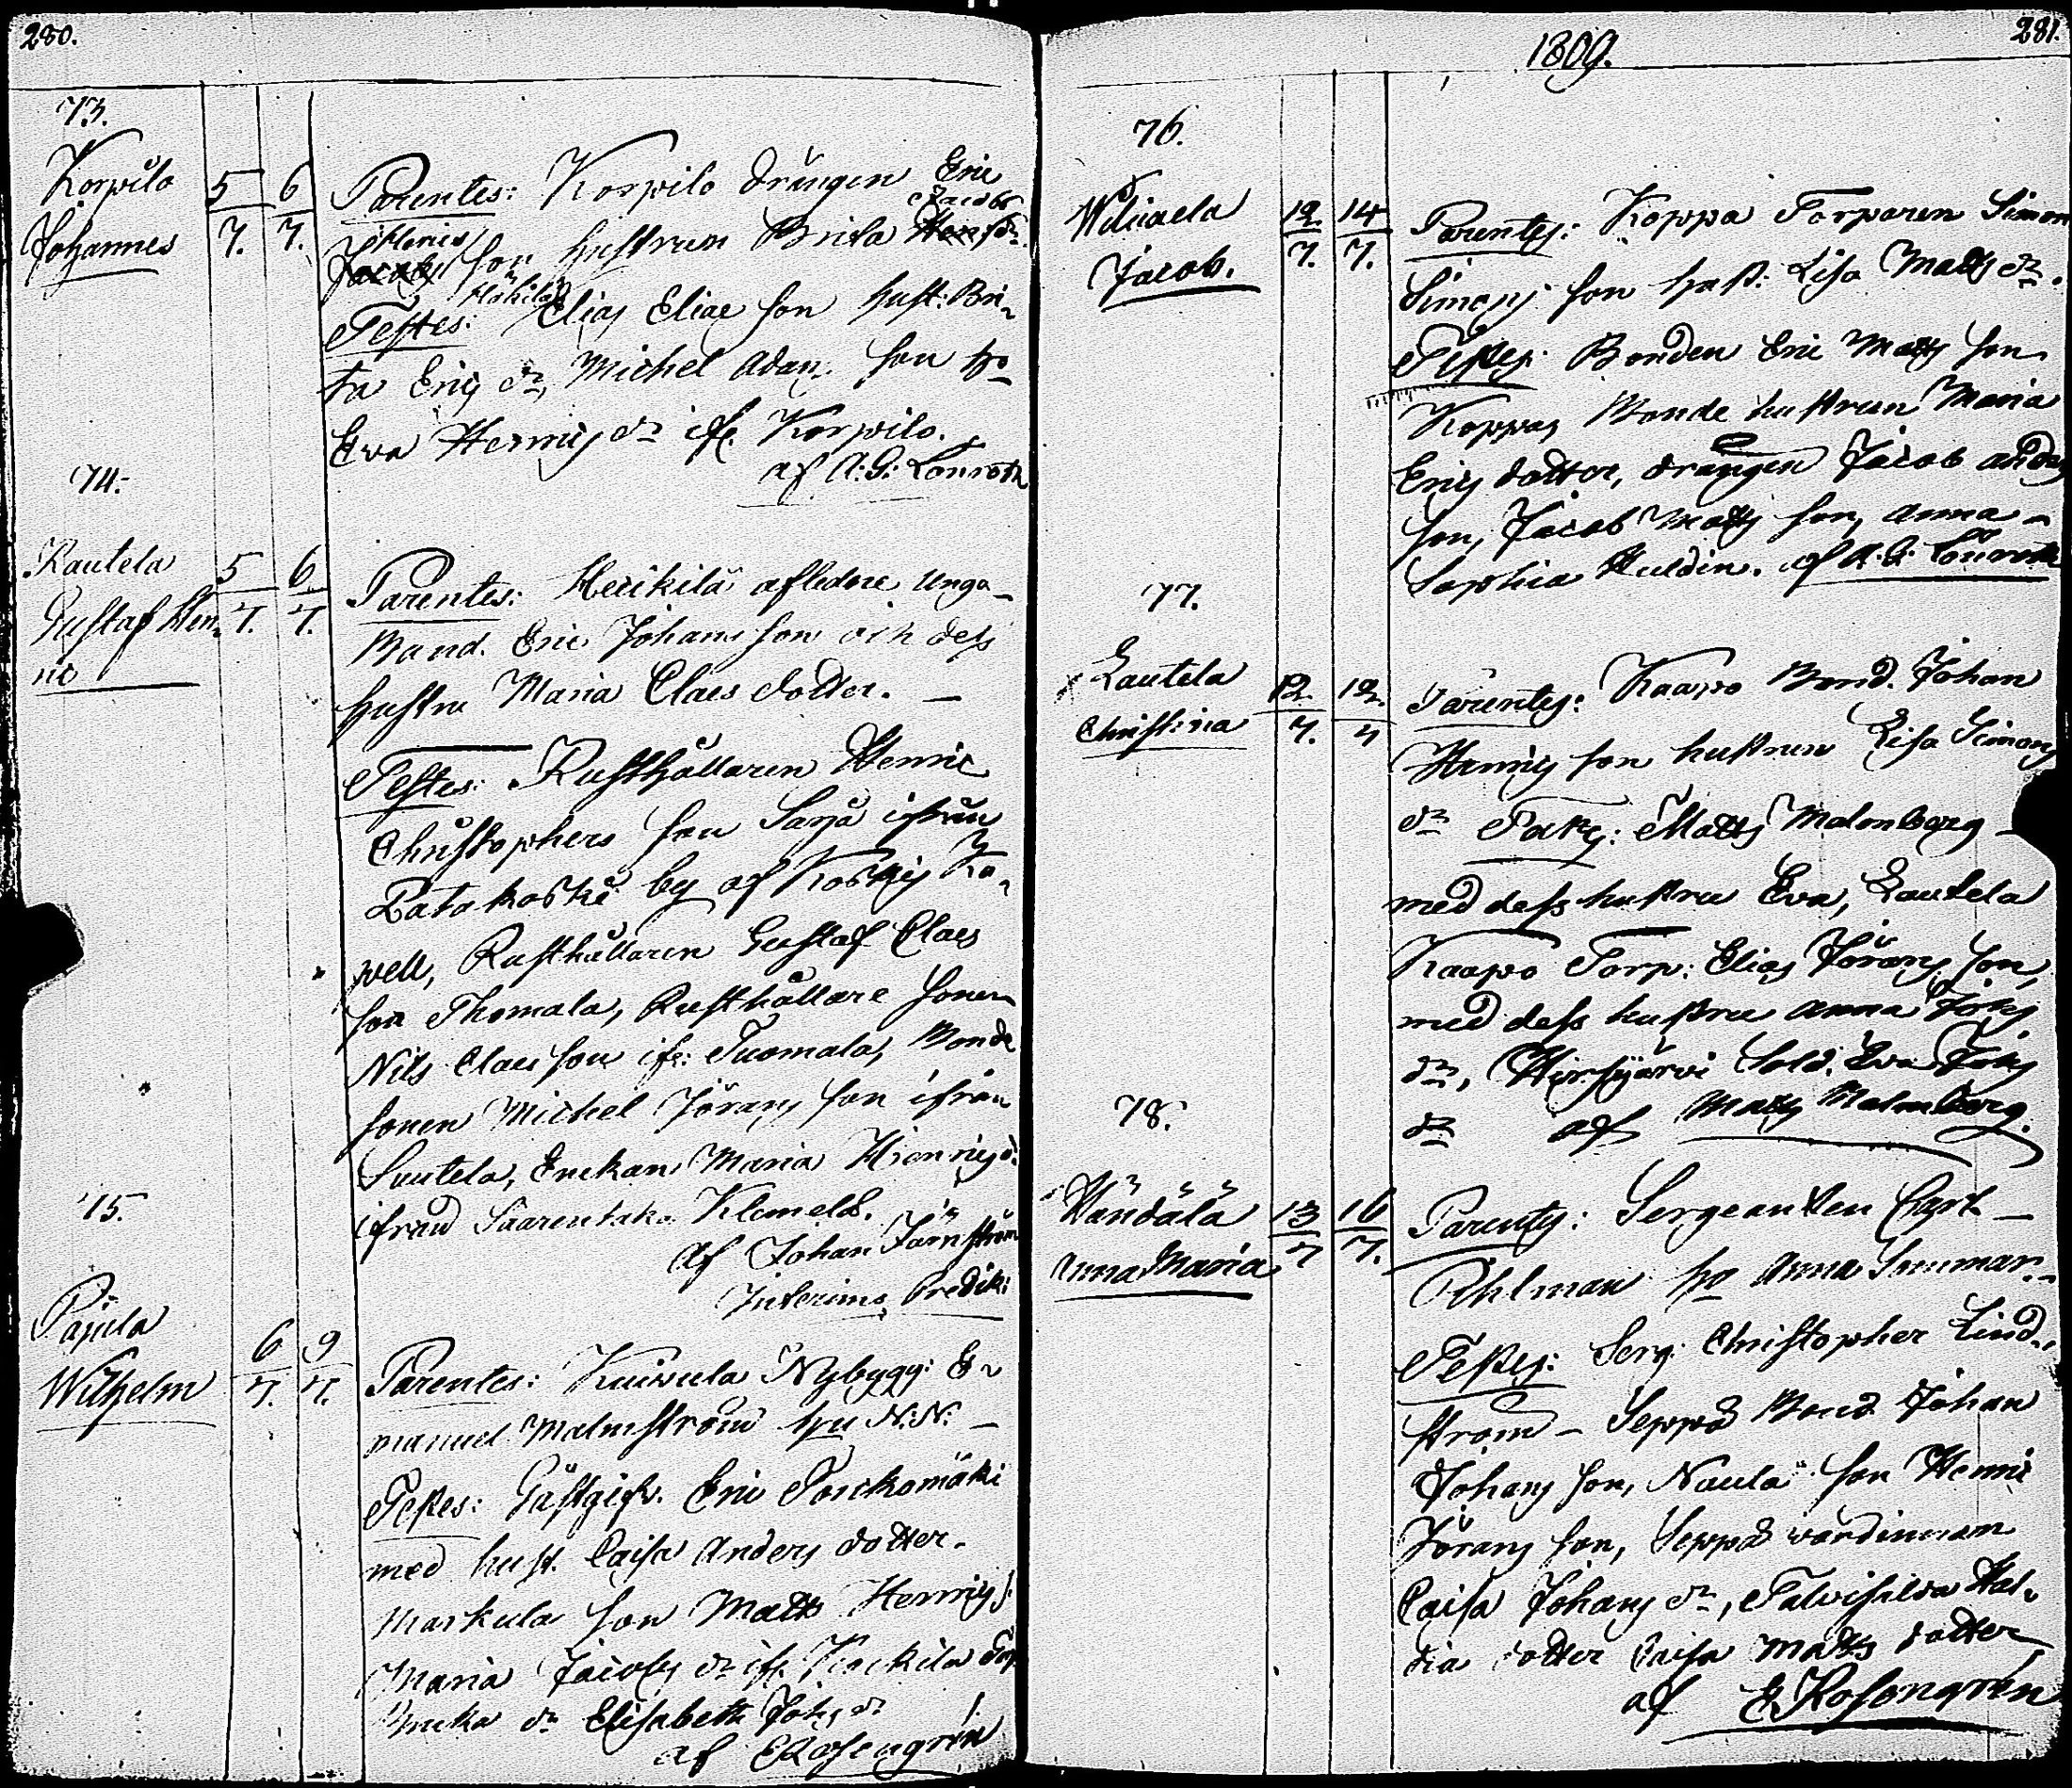 280.
73.
Korpilo
Johannes
5 6
7. 7.
Parentes: Korpilo drängen Eric
Jacobs
Henrics
Jacobs son hustrun Brita Hen dr
Mäkilä
Testes: Elias Eliae son hust: Bri-
ta Erics dr, Michel Adam son
Eva Henrics dr ifr. Korpilo.
af A: G: Lönroth
74.
Rautela
Gustaf Hen-
ric
5 6
7. 7.
Parentes: Heikilä afledne unga
Bond. Eric Johans son och dess
hustru Maria Claes dotter. —
Testes: Rusthållaren Henric
Christophers son Sarja ifrån
Patakoski by af Koskis Ka-
pell, Rusthållaren Gustaf Claes
son Thomala, Rusthållare sonen
Nils Claes son ifr: Tuomala, Bonde
sonen Michel Görans son ifrån
Suutela, Enckan Maria Henrics d:
ifrån Saarentaka Klemelä.
af Johan Järnström
Interims Predik:
75.
Pajula
Wilhelm
6 9
7. 7.
Parentes: Kuivula Nybygg: E-
manuel Malmström hu N: N: —
Testes: Gästgifv. Eric Torckomäki
med hust. Caisa Anders dotter.
Markula son Matts Henrics s:
Maria Jacobs dr ifr. Keckilä
dr Elisabeth Johs dr
af E Rosengrén
1809.
281.
76.
Wiliaela
Jacob.
12 14
7. 7.
Parentes: Koppa Torparen Simon
Simons son hust: Lisa Matts dr.
Testes: Bonden Eric Matts son
Koppa, Bonde hustrun Maria
Erics dotter, drängen Jacob Anders
son, Jacob Matts son, Anna
Sophia Huldin. af A: G: Lönroth
77.
Lautela
Christina
12. 12.
7. 7
Parentes: Kaapo Bond. Johan
Henrics son hustrun Lisa Simons
dr Testes: Matts Malmberg —
med dess hustru Eva, Lautela
Kaapo Torp: Elias Görans son,
med dess hustru Anna Johs
dr, Hirsjärvi Sold. Eva Johs
dr af Matts Malmberg.
78.
Händälä
Anna Maria
13 16
7 7.
Parentes: Sergeanten Carl —
Öhlman ho Anna Summar —
Testes: Serg: Christopher Lind-
ström — Seppä Bond Johan
Johans son, Naula son Henric
Görans son, Seppä värdinnan
Caisa Johans dr, Talvisilda Hal-
dia dotter Caisa Matts dotter
af E Rosengrén